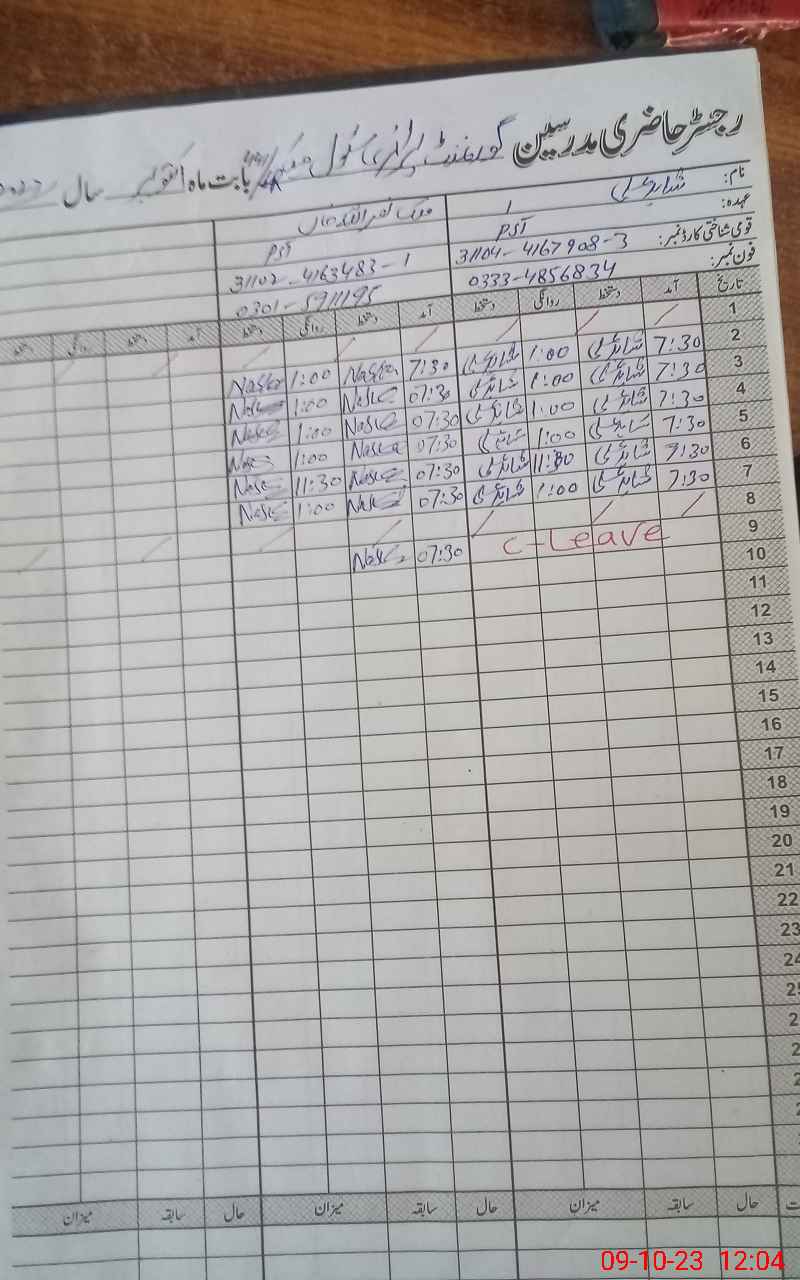 رجسٹر حاضری مدرسین گورنمنٹ پرائمری سکول بابت ماہ اکتوبر سال
نام: شاہد علی ملک نصراللہ خاں
عہدہ: PST PST
قومی شناختی کارڈ نمبر: 31104-4167908-3 31102-4163483-1
فون نمبر: 0333-4856834 0301-5911195
تاریخ آمد دستخط روانگی دستخط آمد دستخط روانگی دستخط آمد دستخط روانگی دستخط
1
2 7:30 شاہد علی 1:00 شاہد علی 7:30 1:00
3 7:30 شاہد علی 1:00 شاہد علی 07:30 1:00
4 7:30 شاہد علی 1:00 شاہد علی 07:30 1:00
5 7:30 شاہد علی 1:00 شاہد علی 07:30 1:00
6 7:30 شاہد علی 11:30 شاہد علی 07:30 11:30
7 7:30 شاہد علی 1:00 شاہد علی 07:30 1:00
8
9 C-Leave 07:30
10
11
12
13
14
15
16
17
18
19
20
21
22
23
24
2
2
2
2
2
حال سابقہ میزان حال سابقہ میزان حال سابقہ میزان
09-10-23 12:04